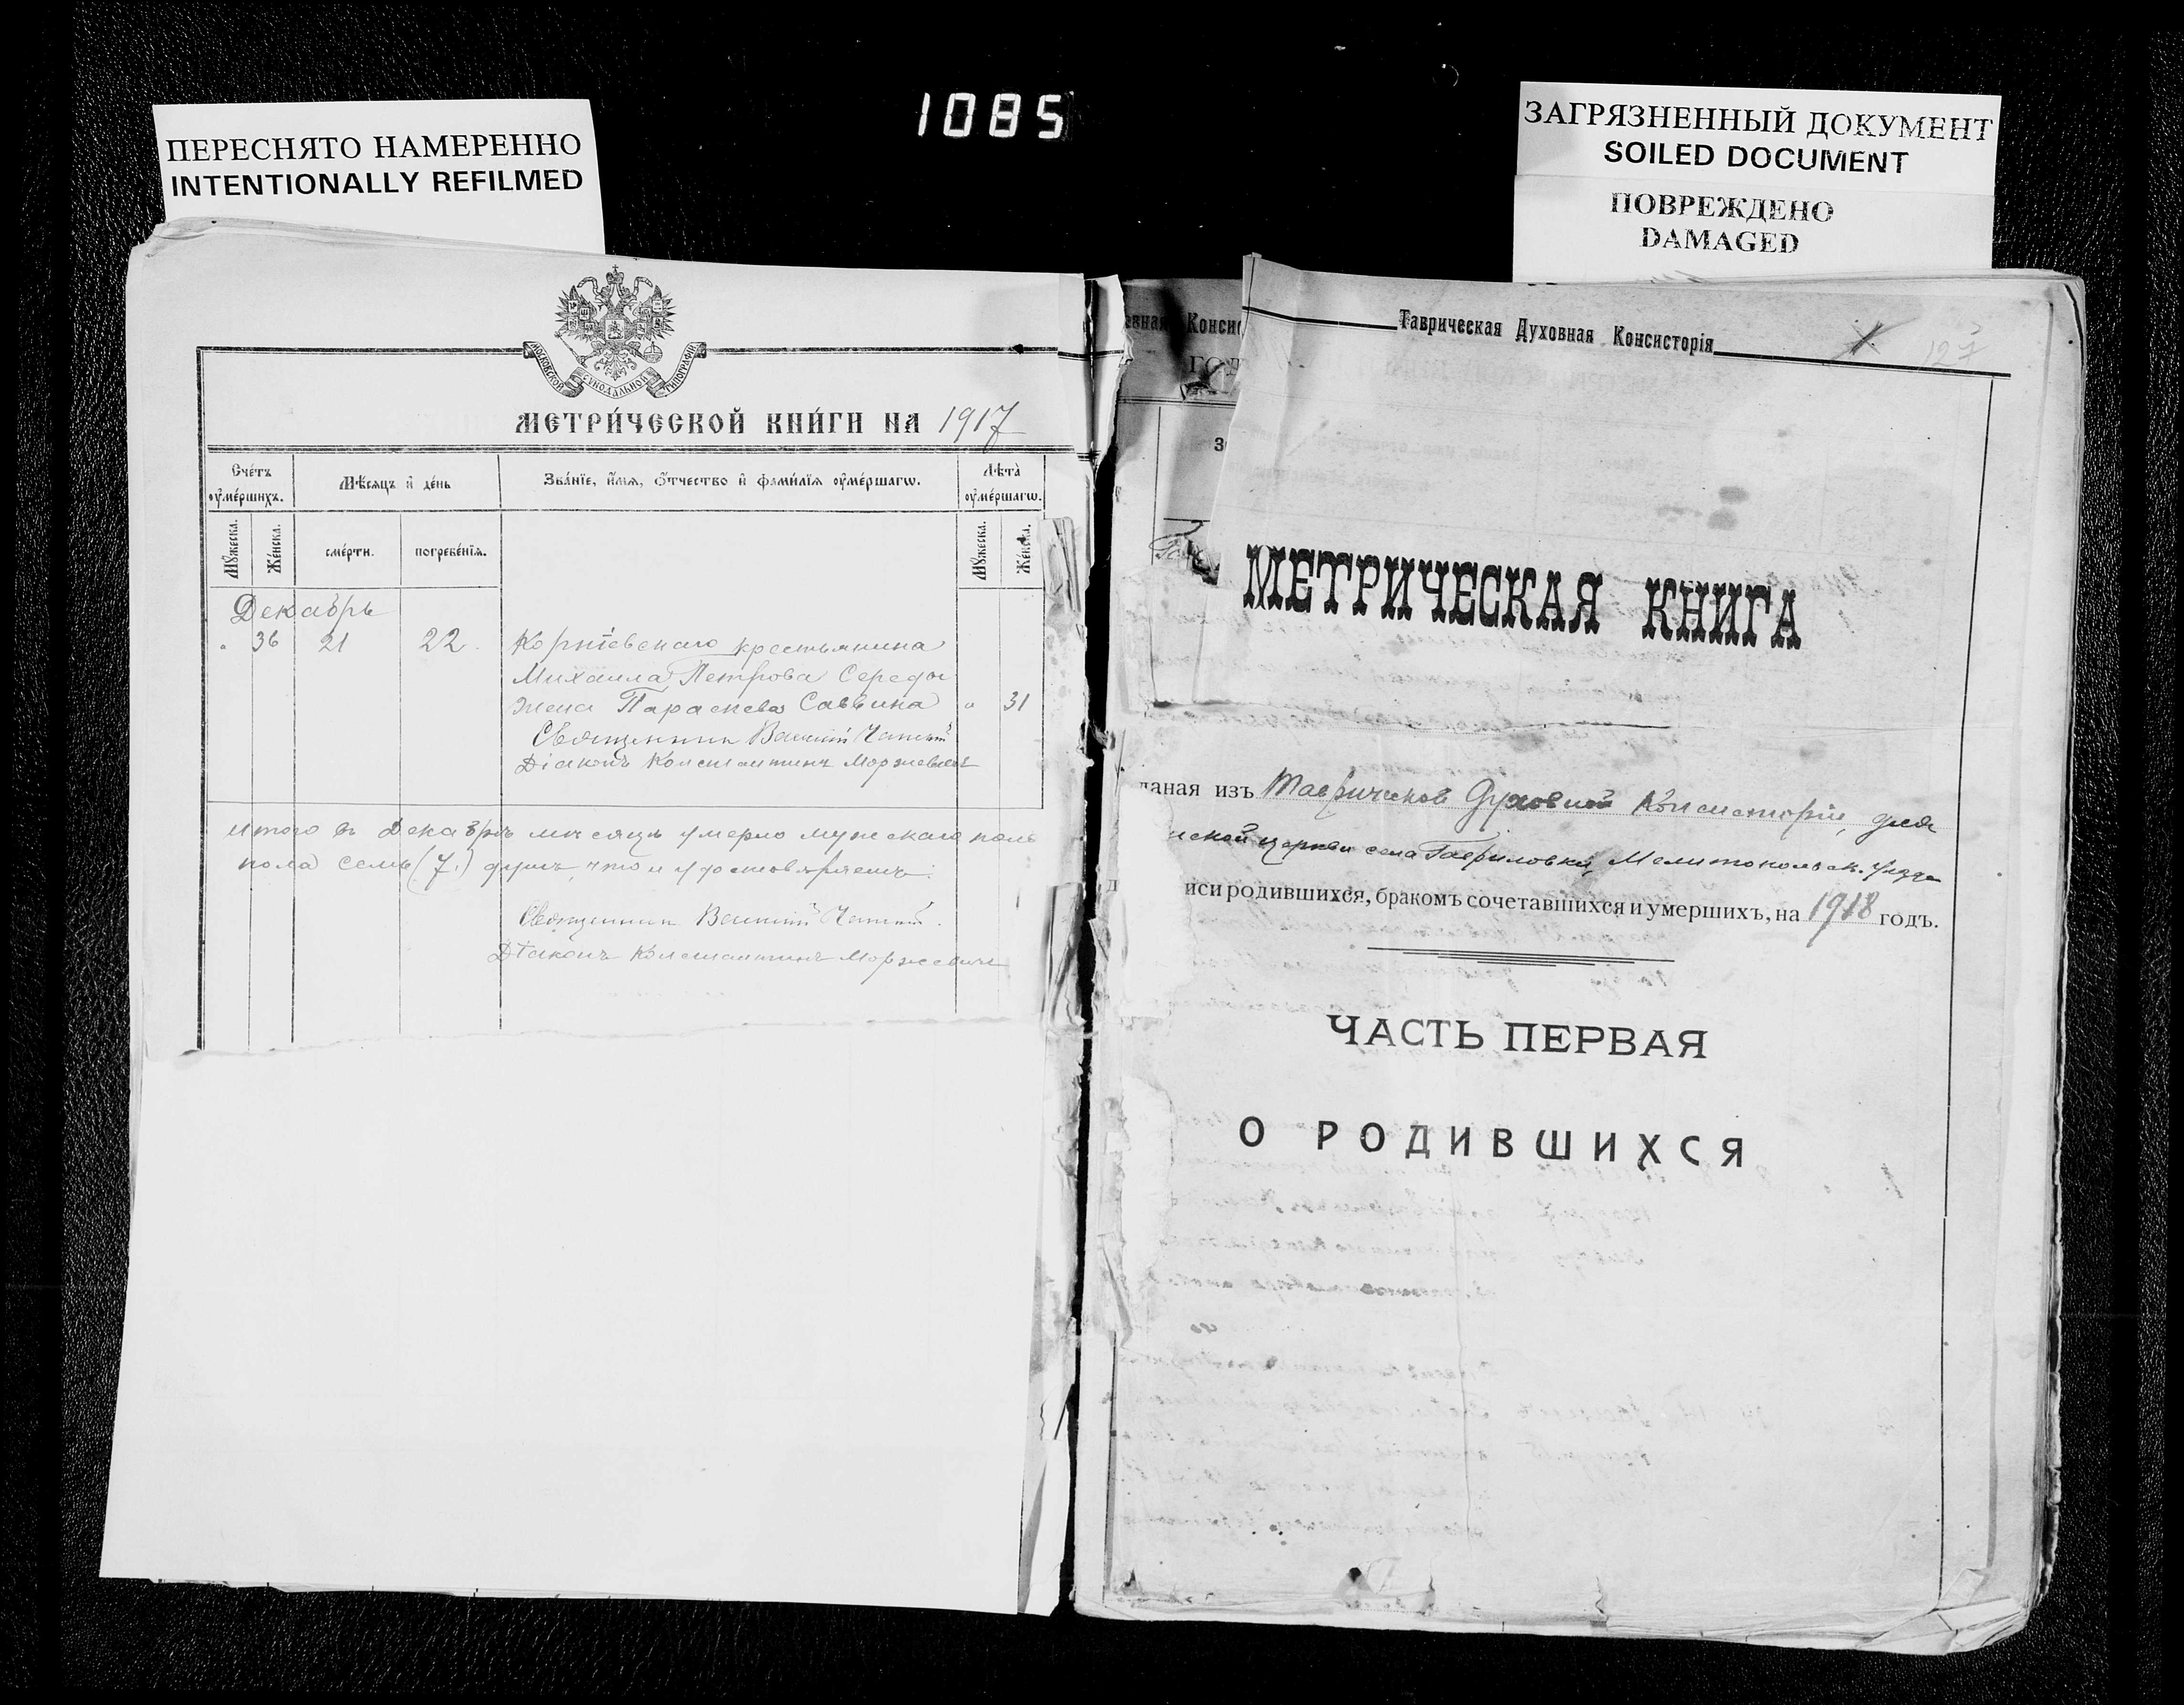 1085
ПЕРЕСНЯТО НАМЕРЕННО
INTENTIONALLY REFILMED
ЗАГРЯЗНЕННЫЙ ДОКУМЕНТ
SOILED DOCUMENT
ПОВРЕЖДЕНО
DAMAGED
МОСКОВСКОЙ СѴНОДАЛЬНОЙ ТИПОГРАФІИ
МЕТРИ́ЧЕСКОЙ КНИ́ГИ НА 1917
Сче́тъ оу҆ме́ршихъ.
Мѣ́сяцъ и҆ де́нь
Зва́нїе, и҆́мя, ѻ҆́тчество и҆ фами́лїя оу҆ме́ршагѡ.
Лѣта̀ оу҆ме́ршагѡ.
Мꙋ́жеска.
Же́нска.
сме́рти.
погребе́нїя.
Мꙋ́жеска.
Же́нска.
Декабрь
" 36 21 22. Корніевскаго крестьянина
Михаила Петрова Середы
жена Параскева Саввина " 31
Священник
Діаконъ Константинъ Моржевичъ
Итого въ Декабрѣ мѣсяцѣ умерло мужскаго
пола семь (7) душъ, что и удостовѣряемъ.
Священник
Діаконъ Константинъ Моржевичъ
вная Консис
ГОД
Таврическая Духовная Консисторія
127
МЕТРИЧЕСКАЯ КНИГА
даная изъ Таврической Духовной Консисторіи, для
нской церкви села Гавриловки, Мелитопольск. уѣзда
иси родившихся, бракомъ сочетавшихся и умершихъ, на 1918 годъ.
ЧАСТЬ ПЕРВАЯ
О РОДИВШИХСЯ